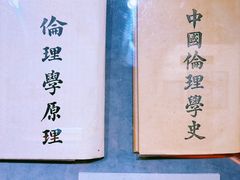 倫理學原理
中國倫理學史